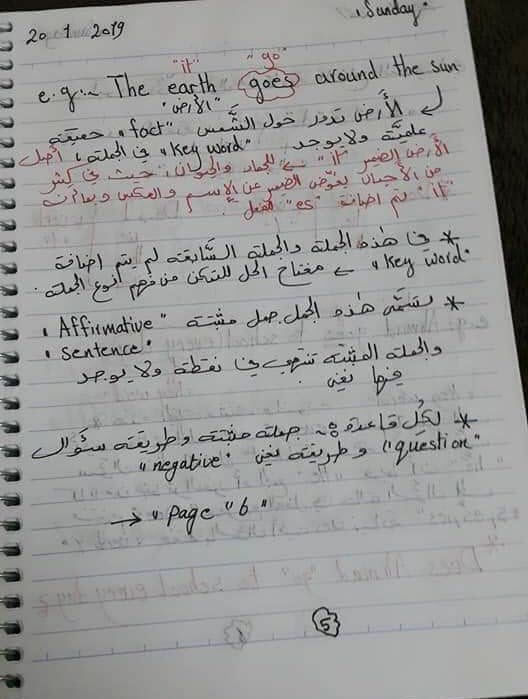 Sunday.
20 1 2019
"it" "go"
e.g:- The earth goes around the sun
"الأرض"
الأرض تدور حول الشَّمس "fact" حقيقة
علميَّة ولا يوجد "Key word" في الجملة، أصل
الأرض الضمير "it" للجماد والحيوان، حيث في كثير
من الأحيان يعوّض الضمير عن الإسم والعكس وبما أنه
"it" تم اضافة "es" للفعل.
* في هذه الجملة والجملة السَّابقة لم يتم اضافة
"Key word" مفتاح الحل للتمكن من فهم نوع الجملة.
* تسمَّى هذه الجمل جمل مثبتة "Affirmative
sentence"
والجملة المثبته تنتهي في نقطة ولا يوجد
فيها نفي.
* لكُل قاعدة جملة مثبتة وطريقة سؤال
"question" وطريقة نفي "negative"
→ "Page "6"
5